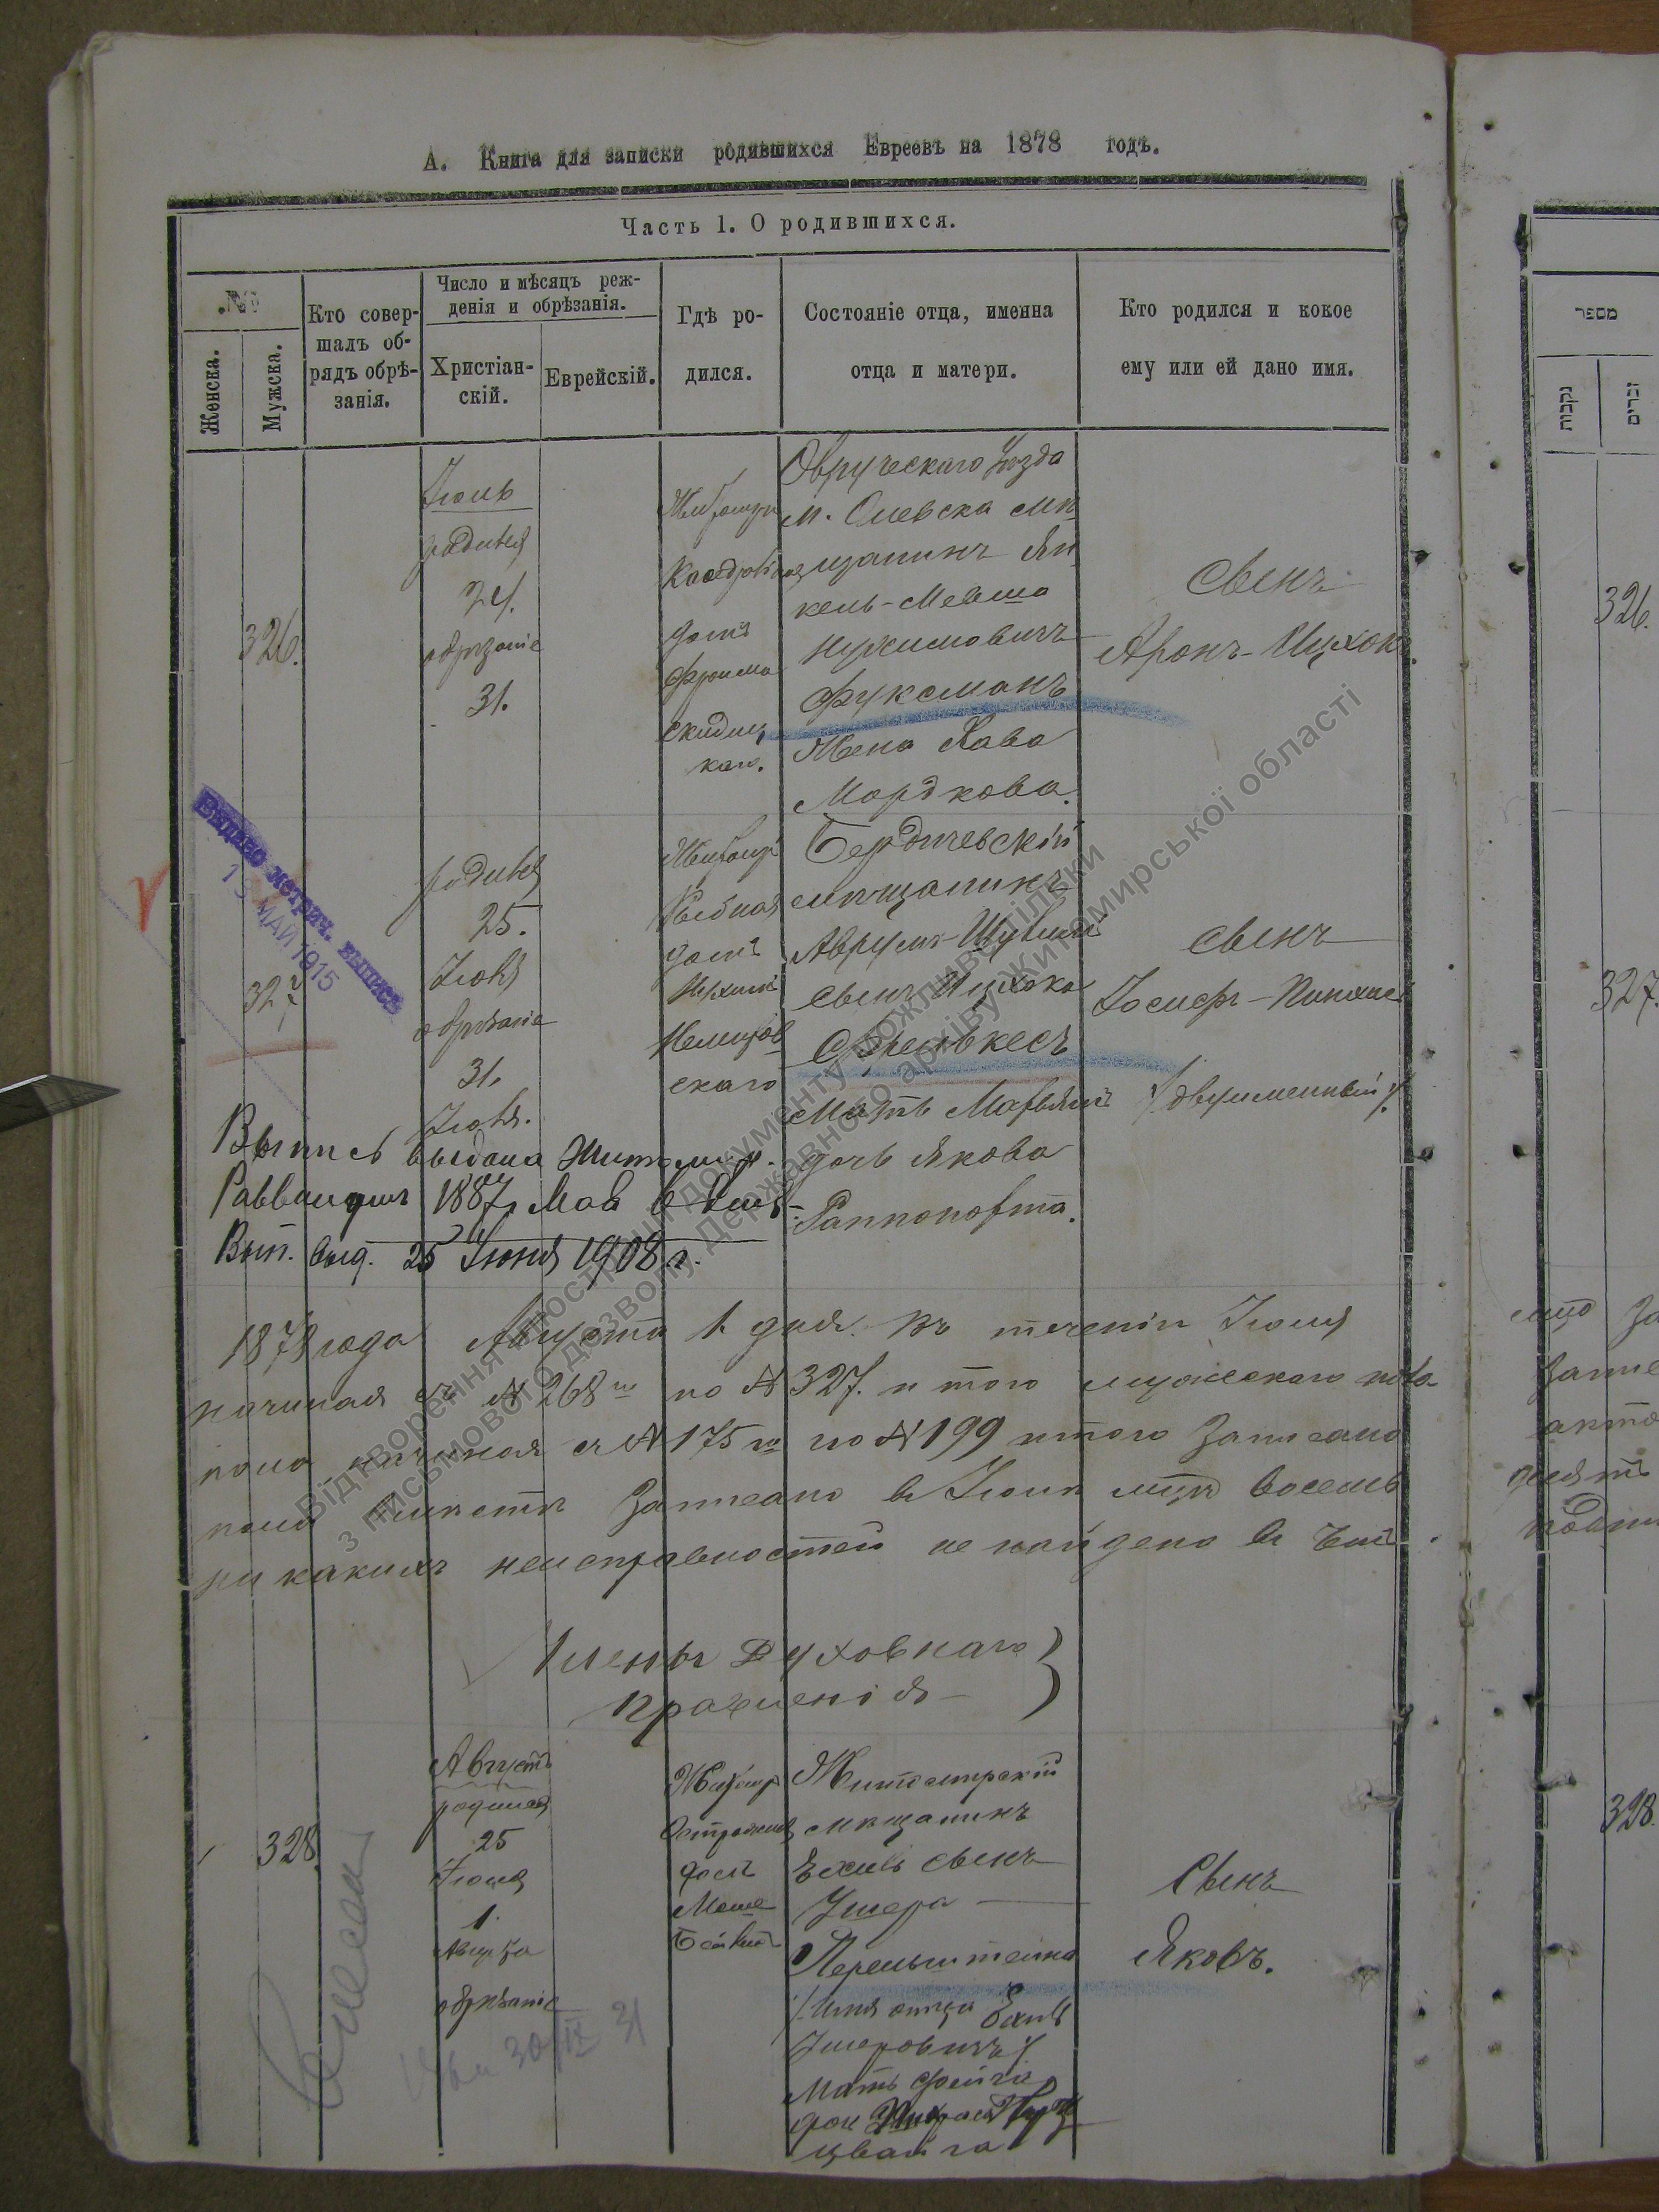 А. Книга для записки родившихся Евреевъ на 1878 годъ.
Часть 1. О родившихся.
№
Женска.
Мужска.
Кто совер-
шалъ об-
рядъ обрѣ-
занія.
Число и мѣсяцъ реж-
денія и обрѣзанія.
Христіан-
скій.
Еврейскій.
Гдѣ ро-
дился.
Состояніе отца, именна
отца и матери.
Кто родился и кокое
ему или ей дано имя.
326.
Іюль
родился
24.
обрѣзаніе
31.
домъ
Фроима
Овручскаго Уѣзда
м. Олевска мѣ
щанинъ Ян
кель-Мевша
Нухимовичъ
Фуксманъ
Жена Хава
Мордкова.
Сынъ
Аронъ-Ицхокъ.
Видано метрич. выпись
13 МАЙ 1915
327
родился
25.
Іюля
обрѣзаніе
31.
Іюля.
Житомір
Рыбная
домъ
Немиров
скаго
Бердичевскій
мѣщанинъ
Аврумъ-Шулимъ
сынъ Ицхока
Френкесъ
Мать Марьямъ
дочь Якова
Раппопорта.
сынъ
Іосифъ-Пинхасъ
/двуименный/.
Выпись выдана Житомир.
Раввиномъ 1887 г. Мая 6 дня
Вып. выд. 25 Іюня 1908 г.
1878 года Августа 1 дня. Въ теченіи Іюля
начиная съ № 268 го по № 327. итого мужескаго пола
пола начиная съ № 175 го по № 199 итого записано
пола вмѣстѣ записано въ Іюлѣ мцѣ восемь
никакихъ неисправностей не найдено въ чемъ
Членъ Духовнаго
Правленія
328.
Августъ
родился
25
Іюля
1.
Августа
обрѣзаніе
Житомір
домъ
Моше
Житомирскій
мѣщанинъ
Ехиль сынъ
Ушера
Перельштейна
/Имя отца Ехиль
Ушеровичъ/
Мать Фейга
цвайга
Сынъ
Яковъ.
מספר
נקבות
זכרים
326.
327.
328.
Відтворення і поширення документу можливе тільки
з письмового дозволу Державного архіву Житомирської області